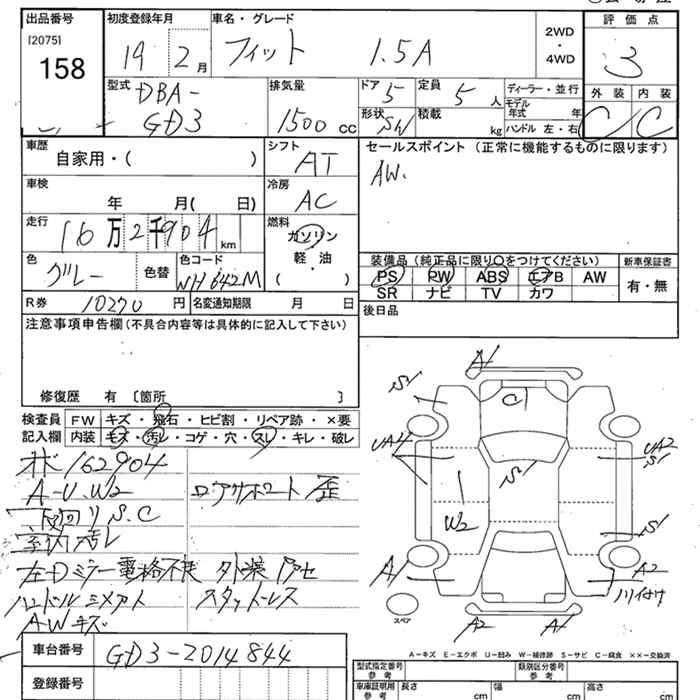 出品番号 初度登録年月 車名・グレード 評価点
[2075]
158
19 2月 フィット 1.5A
2WD
・
4WD
3
型式 排気量 ドア 定員 ディーラー・並行 外装 内装
DBA-
GD3
1500 CC
5
5 人
モデル年式 年
形状 積載 kg ハンドル 左・右
SW
C C
車歴 シフト セールスポイント (正常に機能するものに限ります)
自家用・( ) AT
AW.
車検 冷房
年 月( 日) AC
走行 燃料
16万2千904 km
ガソリン
軽・油
( )
装備品(純正品に限り○をつけてください) 新車保証書
PS PW ABS エアB AW
SR ナビ TV カワ
有・無
色 色替 色コード
グレー NH642M
R券 10270 円 名変通知期限 月 日
後日品
注意事項申告欄(不具合内容等は具体的に記入して下さい)
修復歴 有 〔箇所 〕
検査員 FW キズ・飛石・ヒビ割・リペア跡・×要
記入欄 内装 キズ・汚レ・コゲ・穴・スレ・キレ・破レ
162904
A-U.W2 ロアサポート 歪
下回り S.C
室内汚レ
左Dミラー電格不良 外装
スタットレス
AWキズ
A1
S1
C1
UA4
UA2
S1
S1
W2
S1
A1
A2
スペア
A2
A1
A-キズ E-エクボ U-凹み W-補修跡 S-サビ C-腐食 ××-交換済
車台番号 GD3-2014844
登録番号
型式指定番号 参考 類別区分番号 参考
車庫証明用 参考 長さ cm 幅 cm 高さ cm